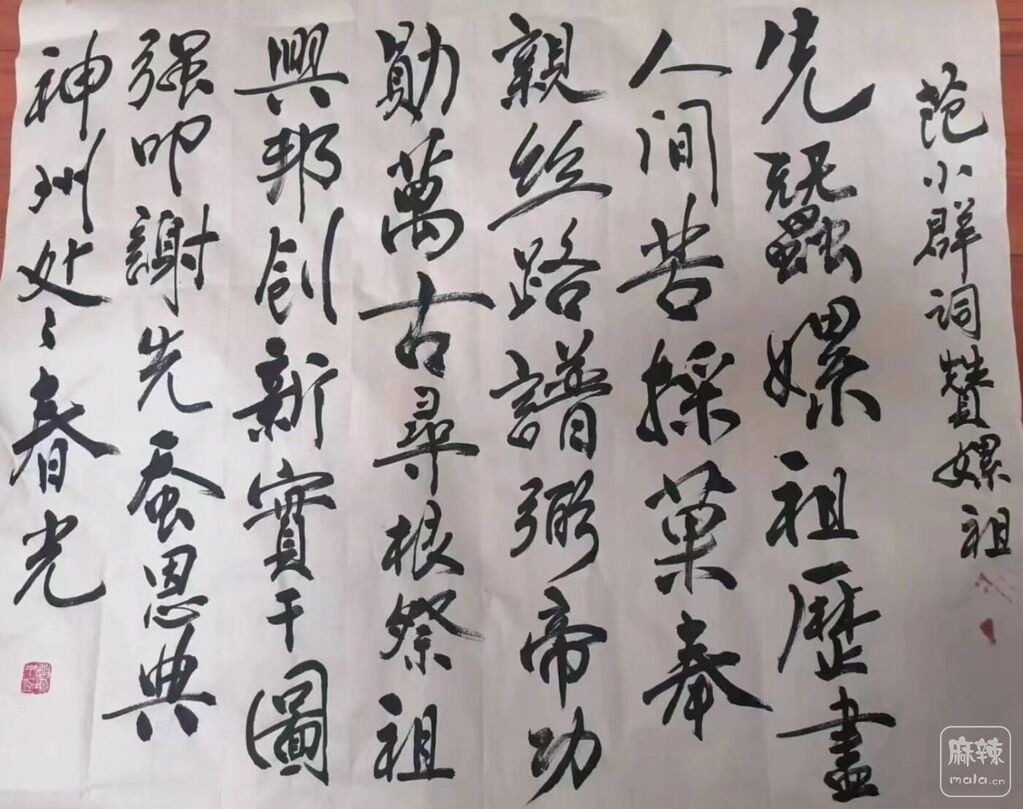 范小群词赞嫘祖
先蠶嫘祖歷盡
人间苦採菓奉
親丝路譜弼帝功
勛萬古尋根祭祖
興邦創新實干圖
强叩謝先蚕恩典
神州处々春光
麻辣
mala.cn